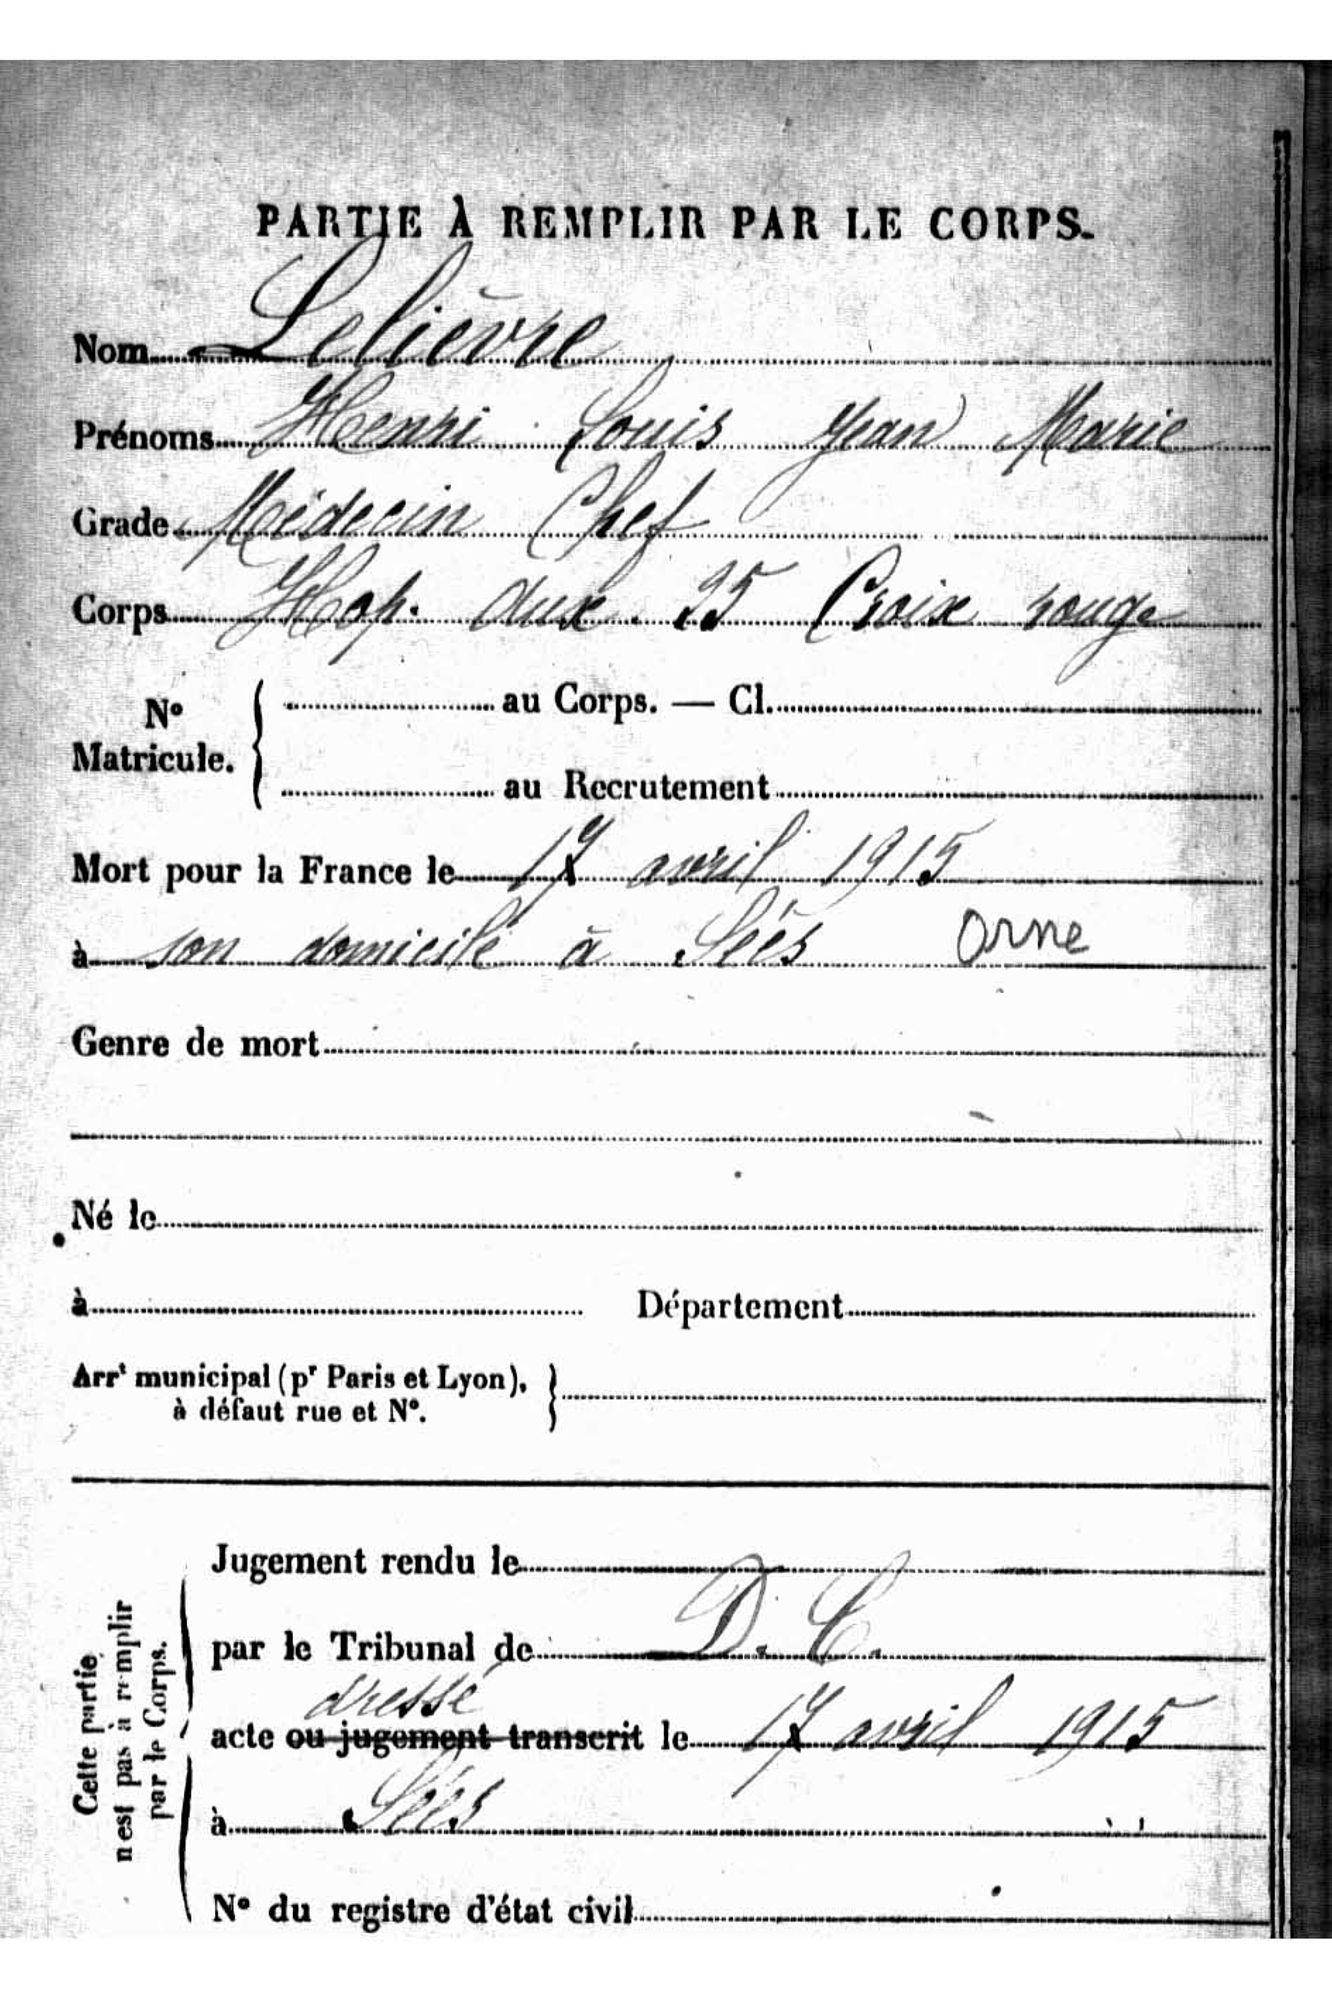 PARTIE À REMPLIR PAR LE CORPS.
Nom Lelièvre
Prénoms Henri Louis Jean Marie
Grade Médecin Chef
Corps Hop. aux. 25 Croix rouge
N° Matricule. { au Corps. — Cl.
au Recrutement
Mort pour la France le 17 avril 1915
à son domicile à Séés Orne
Genre de mort
Né le
à Département
Arrt municipal (pr Paris et Lyon), }
à défaut rue et N°.
Cette partie n'est pas à remplir par le Corps.
Jugement rendu le
par le Tribunal de D. C.
dressé
acte ou jugement transcrit le 17 avril 1915
à Séés
N° du registre d'état civil